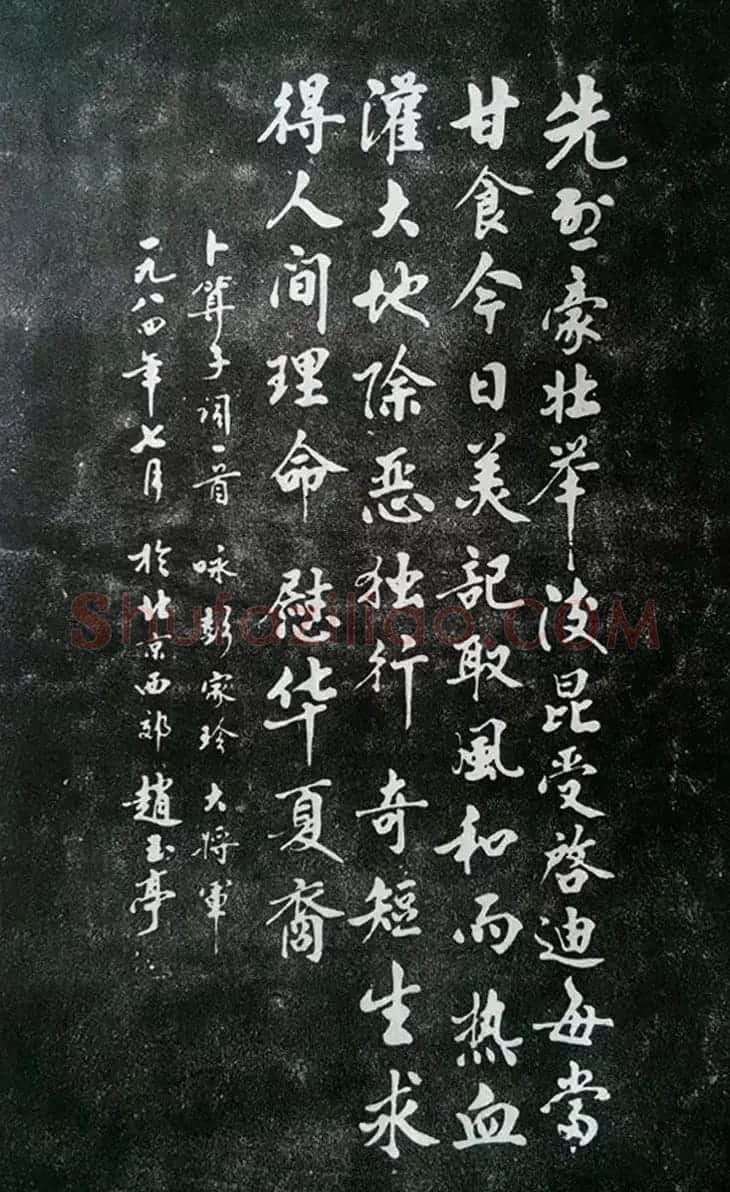 先烈豪壮举后昆受启迪每当
甘食今日美記取風和雨热血
灌大地除恶独行奇短生求
得人间理命慰华夏裔
卜算子词一首咏彭家珍大将軍
一九八四年七月於北京西郊趙玉亭
Shufaziliao.COM